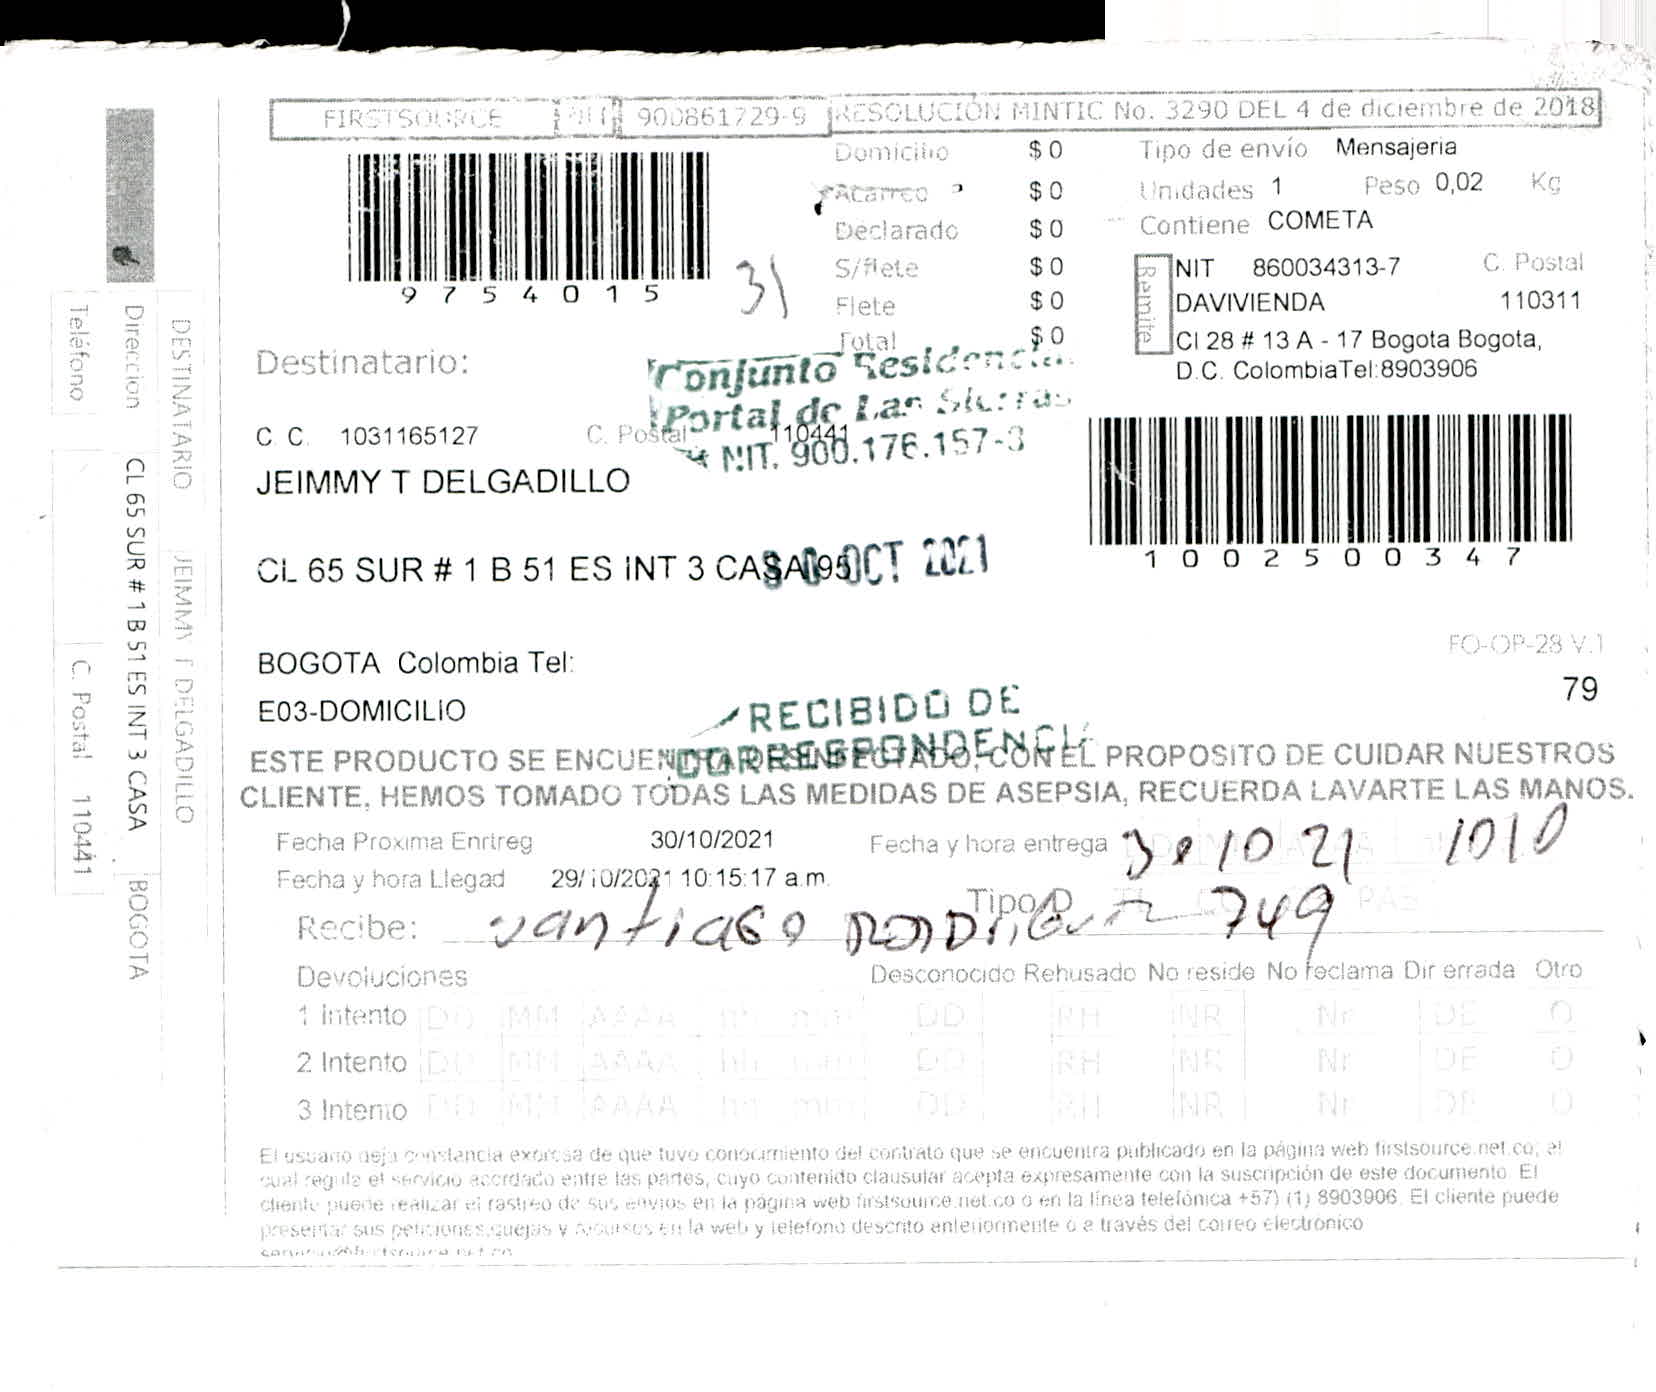 FIRSTSOURCE NIT 900861729-9 RESOLUCIÓN MINTIC No. 3290 DEL 4 de diciembre de 2018
9 7 5 4 0 1 5
31
Domicilio $ 0
Acarreo $ 0
Declarado $ 0
S/flete $ 0
Flete $ 0
Total $ 0
Tipo de envío Mensajeria
Unidades 1 Peso 0,02 Kg
Contiene COMETA
Remite
NIT 860034313-7 C. Postal
DAVIVIENDA 110311
Cl 28 # 13 A - 17 Bogota Bogota,
D.C. ColombiaTel:8903906
Destinatario:
Conjunto Residencial
Portal de Las Sierras
NIT. 900.176.157-3
C. C. 1031165127 C. Postal 110441
JEIMMY T DELGADILLO
1 0 0 2 5 0 0 3 4 7
CL 65 SUR # 1 B 51 ES INT 3 CASA 95
OCT 2021
BOGOTA Colombia Tel:
FO-OP-28 V.1
79
E03-DOMICILIO
RECIBIDO DE
CORRESPONDENCIA
ESTE PRODUCTO SE ENCUENTRA DESINFECTADO, CON EL PROPOSITO DE CUIDAR NUESTROS
CLIENTE, HEMOS TOMADO TODAS LAS MEDIDAS DE ASEPSIA, RECUERDA LAVARTE LAS MANOS.
Fecha Proxima Enrtreg 30/10/2021 Fecha y hora entrega 30 10 21 1010
Fecha y hora Llegad 29/10/2021 10:15:17 a.m.
Tipo D
Recibe: Santiago 749
Devoluciones Desconocido Rehusado No reside No reclama Dir errada Otro
1 Intento DD MM AAAA hh mm DD RH NR Nr DE O
2 Intento DD MM AAAA hh mm DD RH NR Nr DE O
3 Intento DD MM AAAA hh mm DD RH NR Nr DE O
El usuario deja constancia expresa de que tuvo conocimiento del contrato que se encuentra publicado en la página web firstsource.net.co, el
cual regula el servicio acordado entre las partes, cuyo contenido clausular acepta expresamente con la suscripción de este documento. El
cliente puede realizar el rastreo de sus envios en la página web firstsource.net.co o en la línea telefónica +57) (1) 8903906. El cliente puede
presentar sus peticiones,quejas y recursos en la web y telefono descrito anteriormente o a través del correo electronico
DESTINATARIO JEIMMY T DELGADILLO
Direccion CL 65 SUR # 1 B 51 ES INT 3 CASA BOGOTA
Teléfono C. Postal 110441